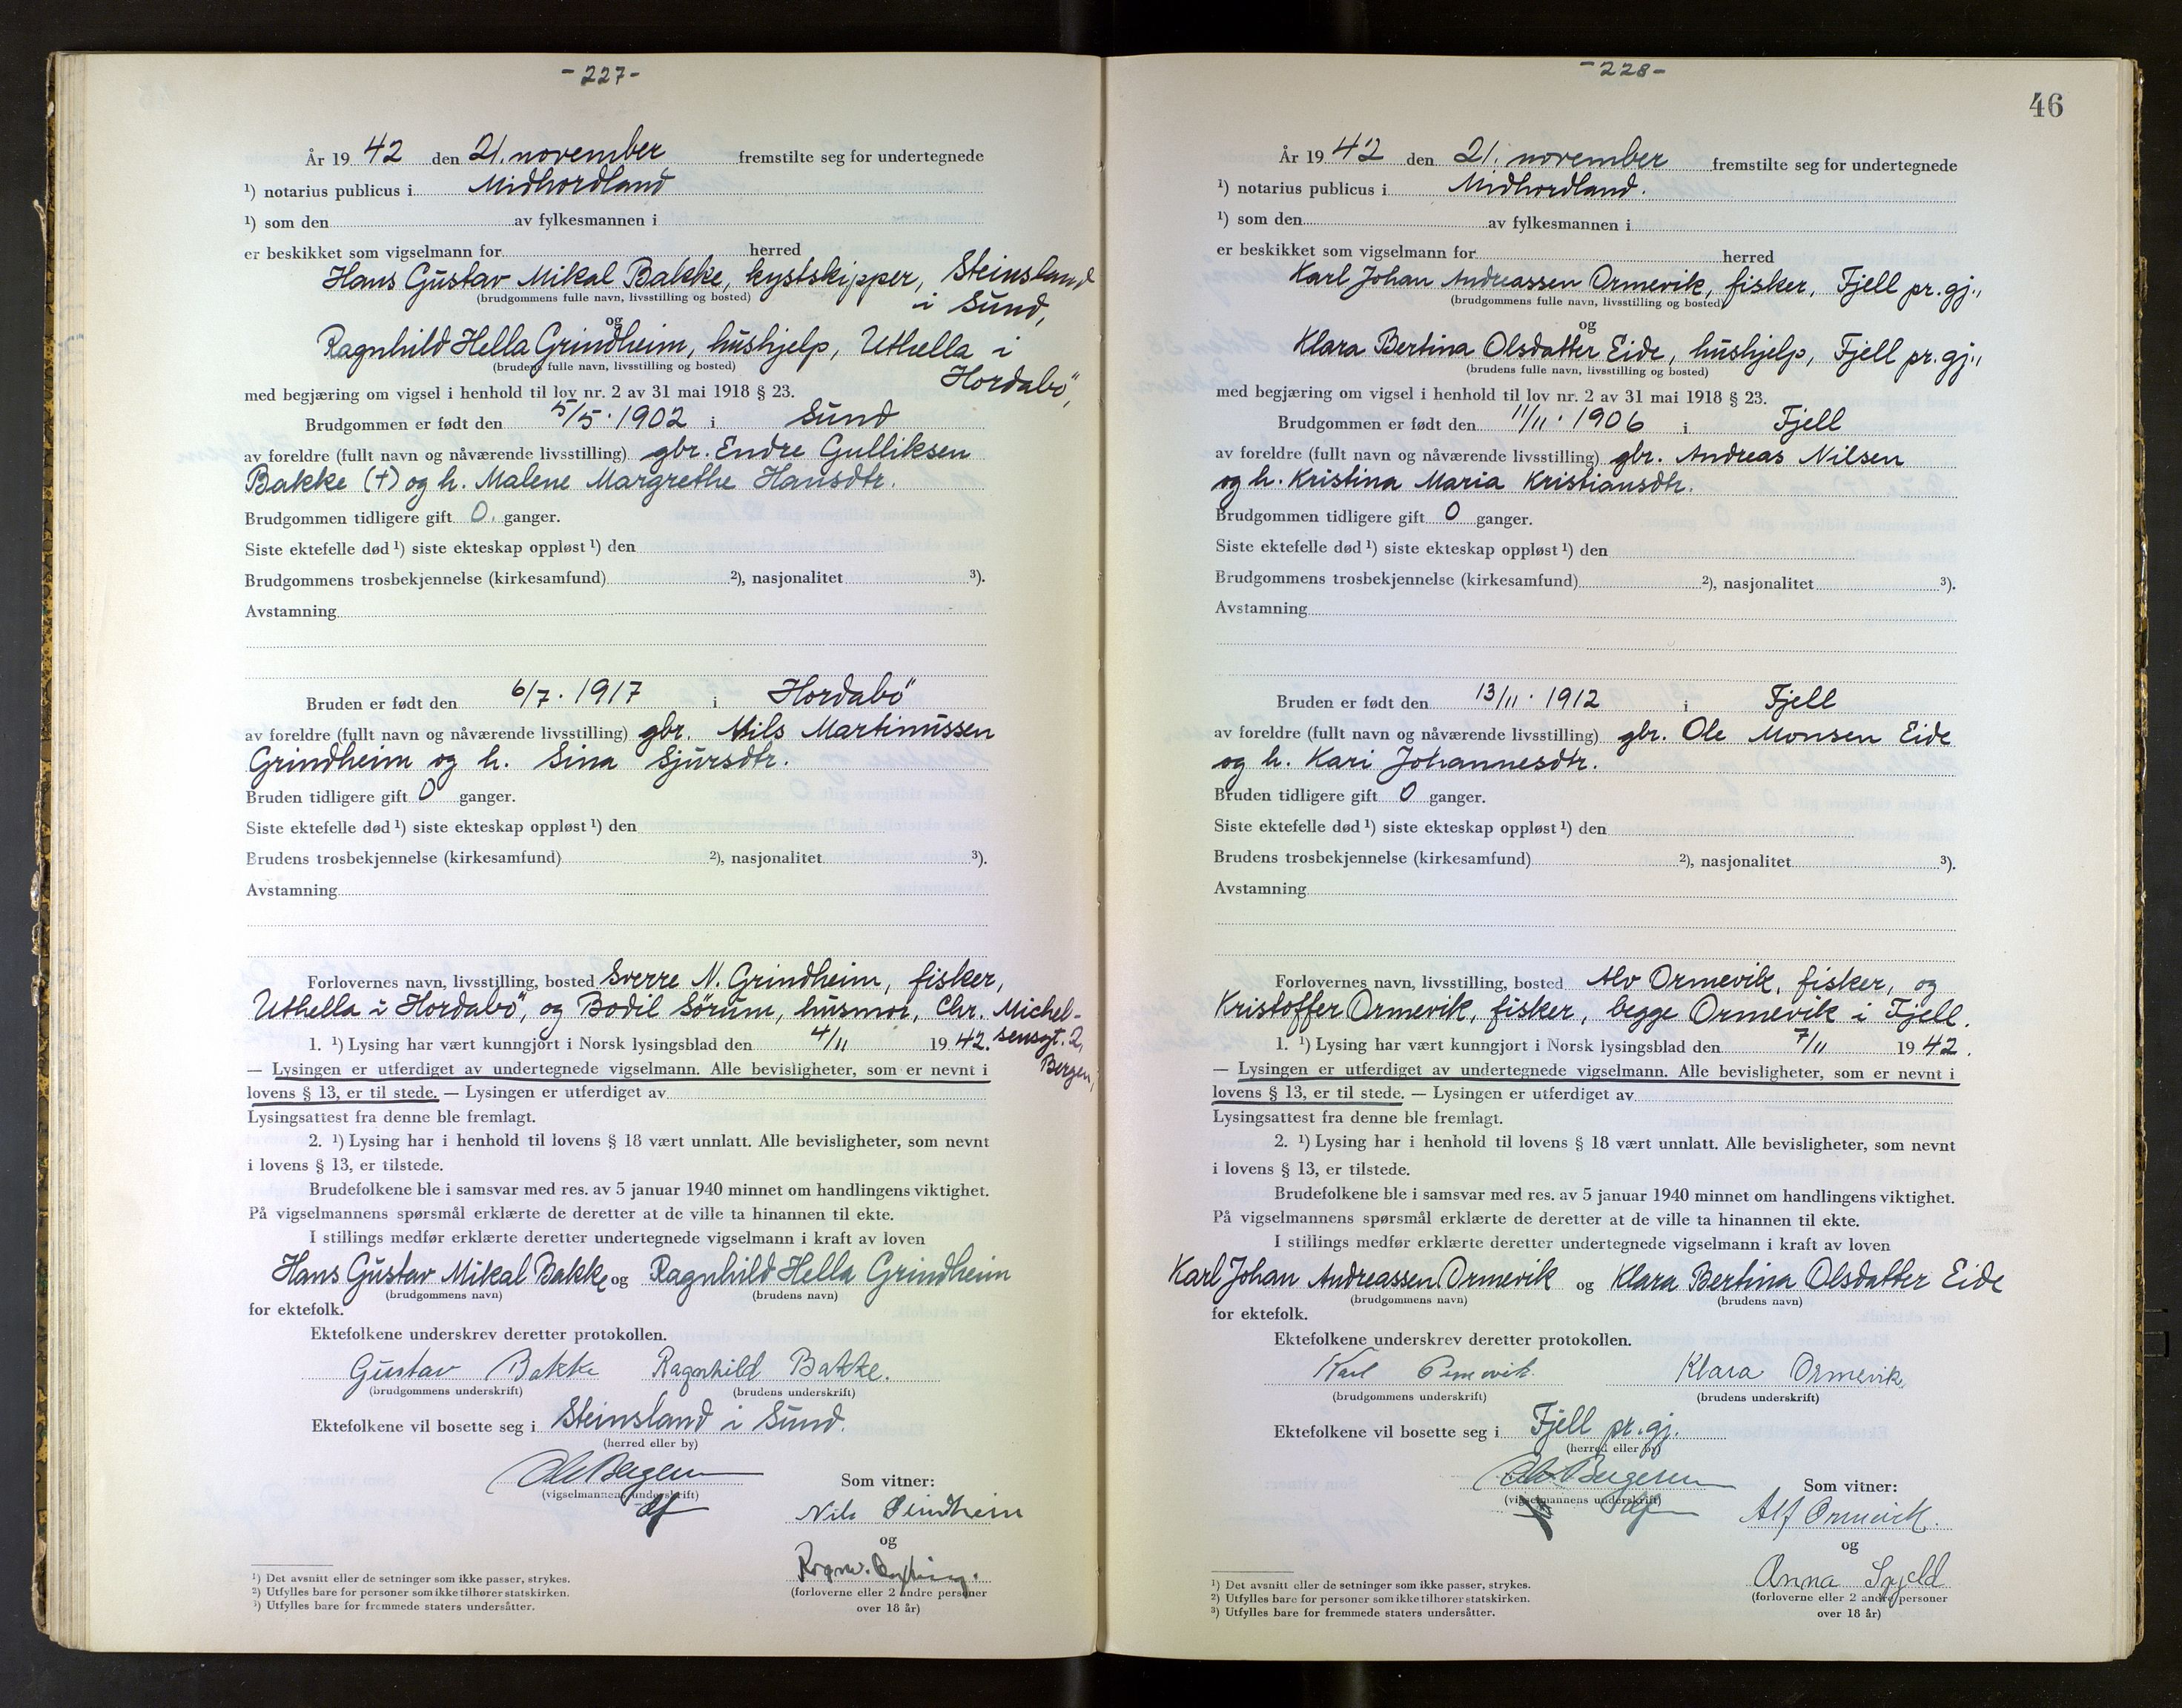 -227-
År 19 42 den 21. november fremstilte seg for undertegnede
¹) notarius publicus i Midhordland
¹) som den av fylkesmannen i
er beskikket som vigselmann for herred
Hans Gustav Mikal Bakke, kystskipper, Steinsland
(brudgommens fulle navn, livsstilling og bosted)
i Sund,
og
Ragnhild Hella Grindheim, hushjelp, Uthella i
(brudens fulle navn, livsstilling og bosted)
Hordabö,
med begjæring om vigsel i henhold til lov nr. 2 av 31 mai 1918 § 23.
Brudgommen er født den 5/5. 1902 i Sund
av foreldre (fullt navn og nåværende livsstilling) gbr. Endre Gulliksen
Bakke (†) og h. Malene Margrethe Hansdtr.
Brudgommen tidligere gift 0. ganger.
Siste ektefelle død ¹) siste ekteskap oppløst ¹) den
Brudgommens trosbekjennelse (kirkesamfund) ²), nasjonalitet ³).
Avstamning
Bruden er født den 6/7. 1917 i Hordabö
av foreldre (fullt navn og nåværende livsstilling) gbr. Nils Martinussen
Grindheim og h. Sina Sjursdtr.
Bruden tidligere gift 0 ganger.
Siste ektefelle død ¹) siste ekteskap oppløst ¹) den
Brudens trosbekjennelse (kirkesamfund) ²), nasjonalitet ³).
Avstamning
Forlovernes navn, livsstilling, bosted Sverre N. Grindheim, fisker,
Uthella i Hordabö, og Bodil Sörum, husmor, Chr. Michel-
1. ¹) Lysing har vært kunngjort i Norsk lysingsblad den 4/11 19 42. sensgt. 2,
Bergen,
— Lysingen er utferdiget av undertegnede vigselmann. Alle bevisligheter, som er nevnt i
lovens § 13, er til stede. — Lysingen er utferdiget av
Lysingsattest fra denne ble fremlagt.
2. ¹) Lysing har i henhold til lovens § 18 vært unnlatt. Alle bevisligheter, som nevnt
i lovens § 13, er tilstede.
Brudefolkene ble i samsvar med res. av 5 januar 1940 minnet om handlingens viktighet.
På vigselmannens spørsmål erklærte de deretter at de ville ta hinannen til ekte.
I stillings medfør erklærte deretter undertegnede vigselmann i kraft av loven
Hans Gustav Mikal Bakke og Ragnhild Hella Grindheim
(brudgommens navn) (brudens navn)
for ektefolk.
Ektefolkene underskrev deretter protokollen.
Gustav Bakke Ragnhild Bakke.
(brudgommens underskrift) (brudens underskrift)
Ektefolkene vil bosette seg i Steinsland i Sund.
(herred eller by)
Som vitner:
(vigselmannens underskrift)
Nils Grindheim
og
(forloverne eller 2 andre personer
over 18 år)
¹) Det avsnitt eller de setninger som ikke passer, strykes.
²) Utfylles bare for personer som ikke tilhører statskirken.
³) Utfylles bare for fremmede staters undersåtter.
-228-
46
År 19 42 den 21. november fremstilte seg for undertegnede
¹) notarius publicus i Midhordland.
¹) som den av fylkesmannen i
er beskikket som vigselmann for herred
Karl Johan Andreassen Ormevik, fisker, Fjell pr.gj.,
(brudgommens fulle navn, livsstilling og bosted)
og
Klara Bertina Olsdatter Eide, hushjelp, Fjell pr.gj.,
(brudens fulle navn, livsstilling og bosted)
med begjæring om vigsel i henhold til lov nr. 2 av 31 mai 1918 § 23.
Brudgommen er født den 11/11. 1906 i Fjell
av foreldre (fullt navn og nåværende livsstilling) gbr. Andreas Nilsen
og h. Kristina Maria Kristiansdtr.
Brudgommen tidligere gift 0 ganger.
Siste ektefelle død ¹) siste ekteskap oppløst ¹) den
Brudgommens trosbekjennelse (kirkesamfund) ²), nasjonalitet ³).
Avstamning
Bruden er født den 13/11. 1912 i Fjell
av foreldre (fullt navn og nåværende livsstilling) gbr. Ole Monsen Eide
og h. Kari Johannesdtr.
Bruden tidligere gift 0 ganger.
Siste ektefelle død ¹) siste ekteskap oppløst ¹) den
Brudens trosbekjennelse (kirkesamfund) ²), nasjonalitet ³).
Avstamning
Forlovernes navn, livsstilling, bosted Alv Ormevik, fisker, og
Kristoffer Ormevik, fisker, begge Ormevik i Fjell.
1. ¹) Lysing har vært kunngjort i Norsk lysingsblad den 7/11 19 42.
— Lysingen er utferdiget av undertegnede vigselmann. Alle bevisligheter, som er nevnt i
lovens § 13, er til stede. — Lysingen er utferdiget av
Lysingsattest fra denne ble fremlagt.
2. ¹) Lysing har i henhold til lovens § 18 vært unnlatt. Alle bevisligheter, som nevnt
i lovens § 13, er tilstede.
Brudefolkene ble i samsvar med res. av 5 januar 1940 minnet om handlingens viktighet.
På vigselmannens spørsmål erklærte de deretter at de ville ta hinannen til ekte.
I stillings medfør erklærte deretter undertegnede vigselmann i kraft av loven
Karl Johan Andreassen Ormevik og Klara Bertina Olsdatter Eide
(brudgommens navn) (brudens navn)
for ektefolk.
Ektefolkene underskrev deretter protokollen.
Karl Ormevik. Klara Ormevik.
(brudgommens underskrift) (brudens underskrift)
Ektefolkene vil bosette seg i Fjell pr.gj.
(herred eller by)
Som vitner:
(vigselmannens underskrift)
Alf Ormevik.
og
Anna
(forloverne eller 2 andre personer
over 18 år)
¹) Det avsnitt eller de setninger som ikke passer, strykes.
²) Utfylles bare for personer som ikke tilhører statskirken.
³) Utfylles bare for fremmede staters undersåtter.